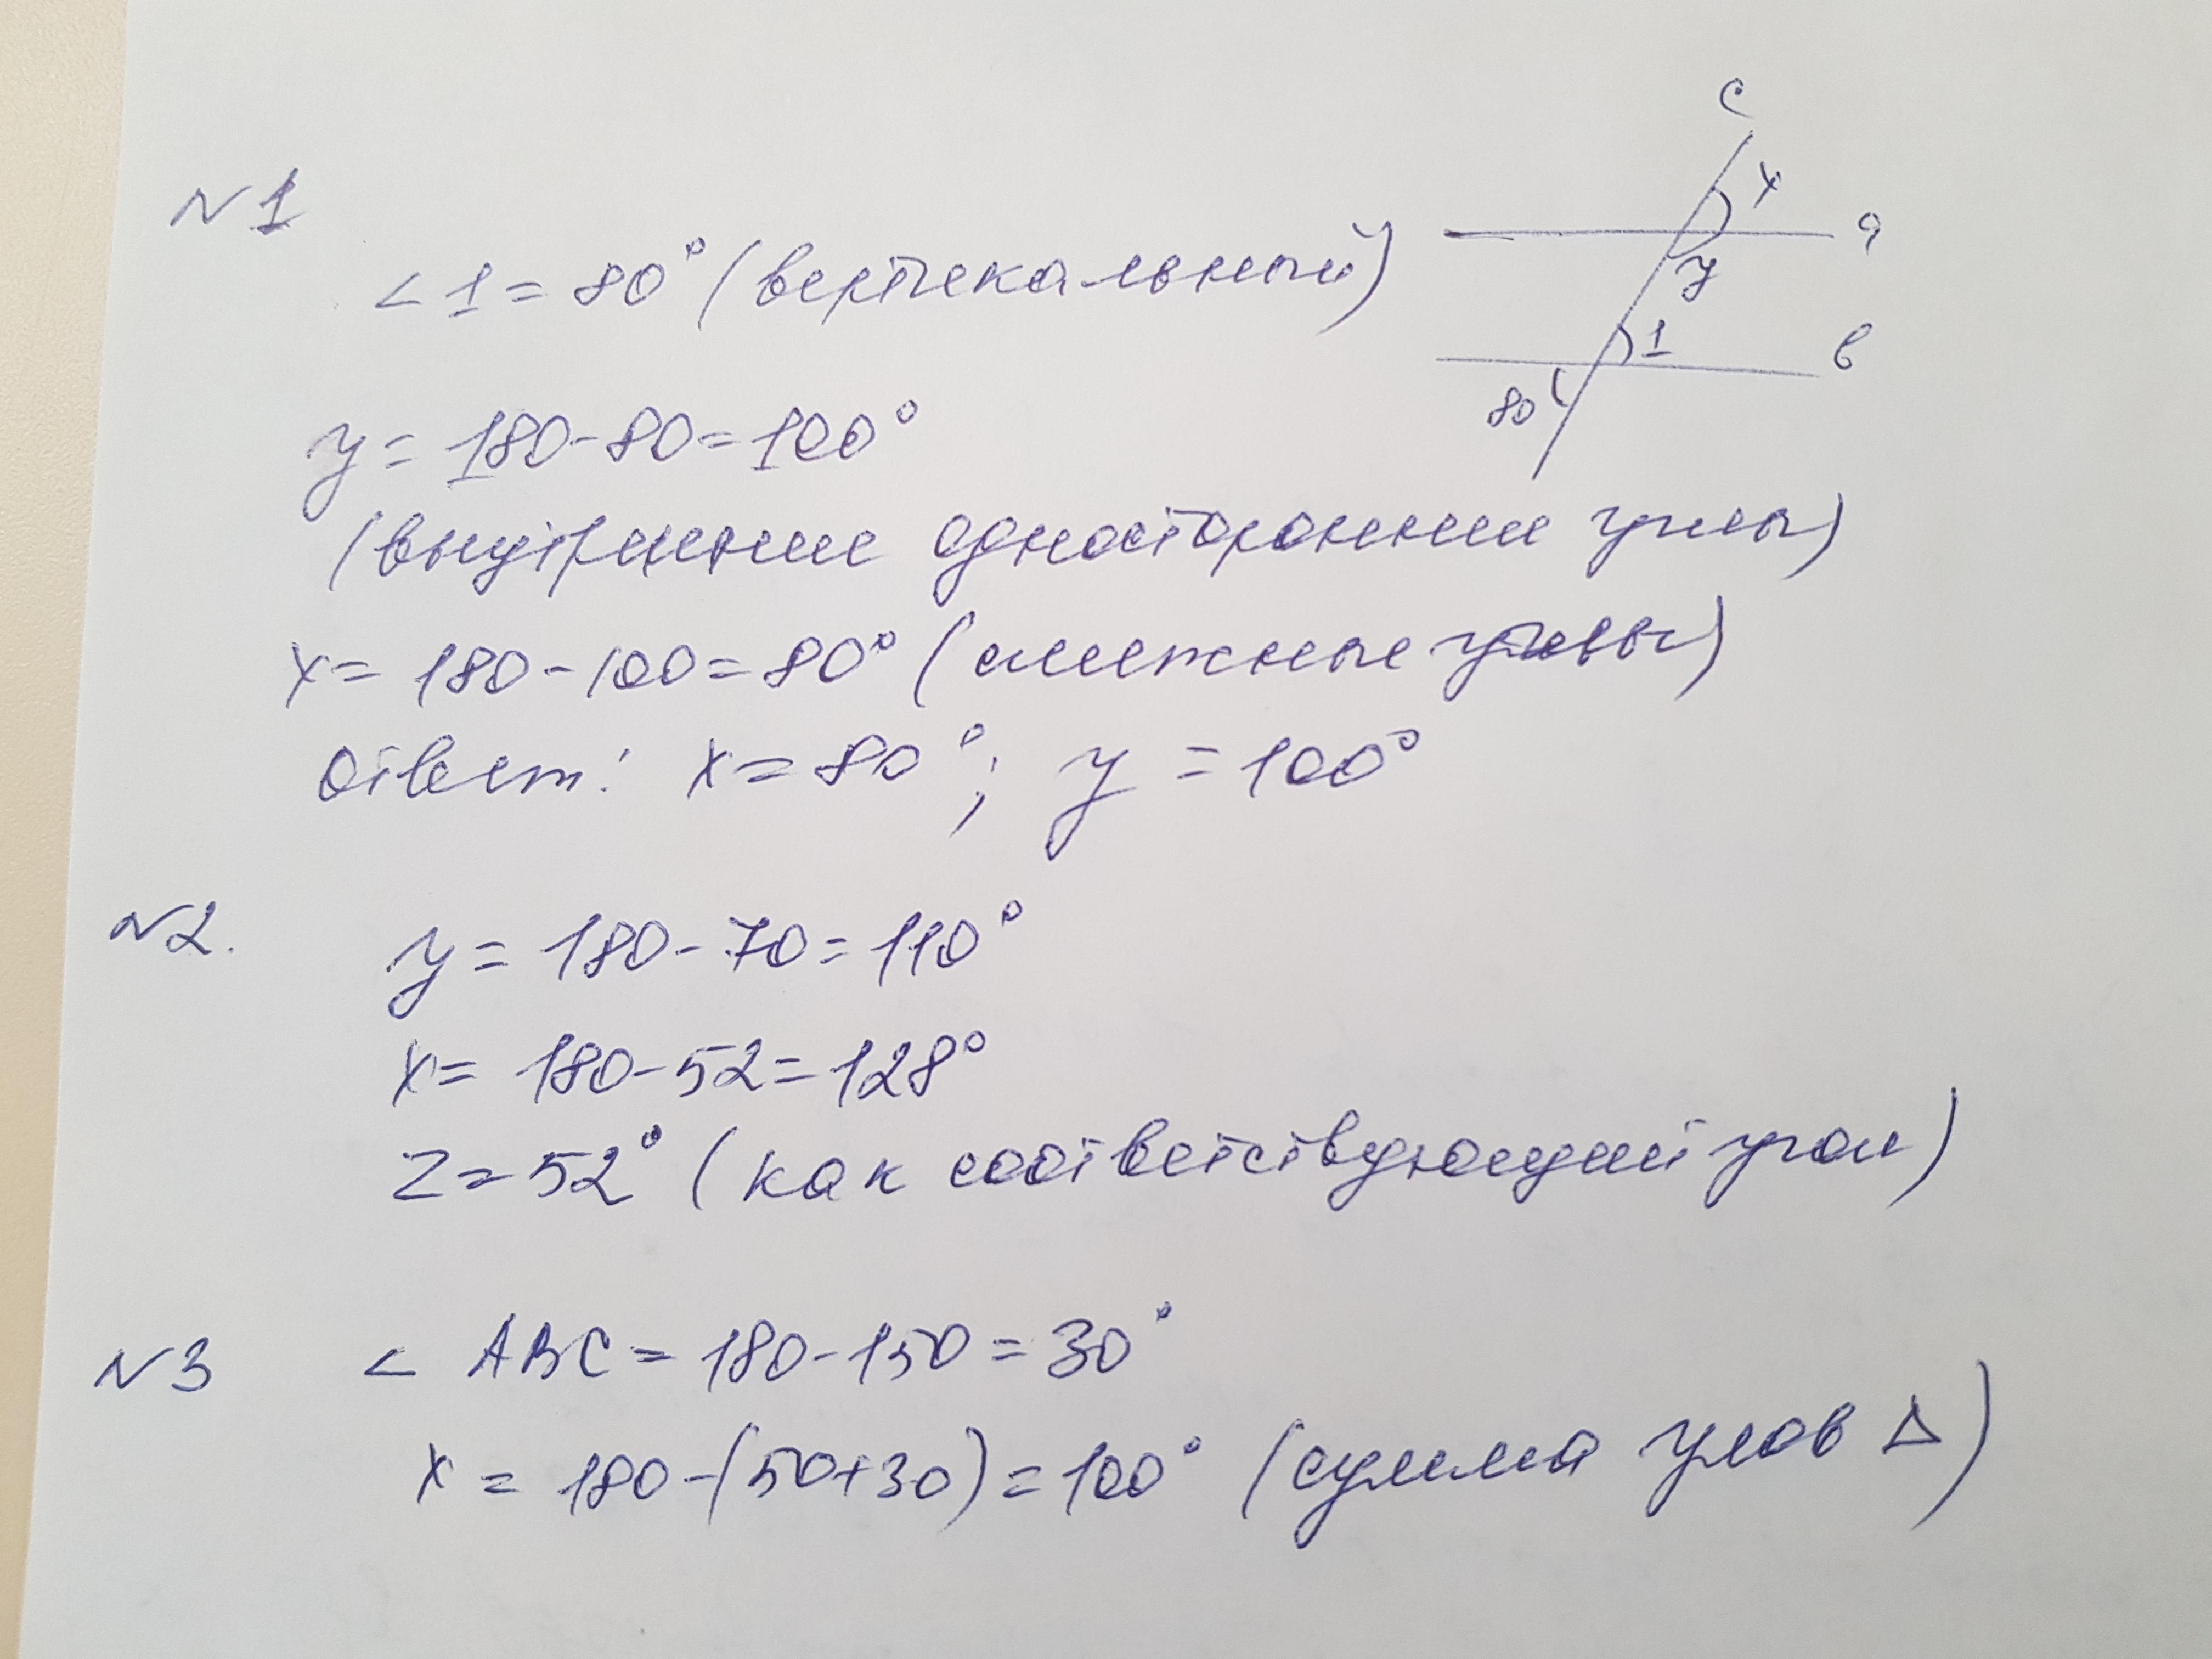 N1
c
x
a
y
1
в
80
<1 = 80° (вертикальный)
y = 180-80=100°
(внутренние односторонние углы)
x = 180-100=80° (смежные углы)
Ответ: x=80°; y=100°
N2. y = 180-70=110°
x = 180-52=128°
z=52° (как соответствующий угол)
N3 < ABC = 180-150=30°
x = 180-(50+30)=100° (сумма углов Δ)